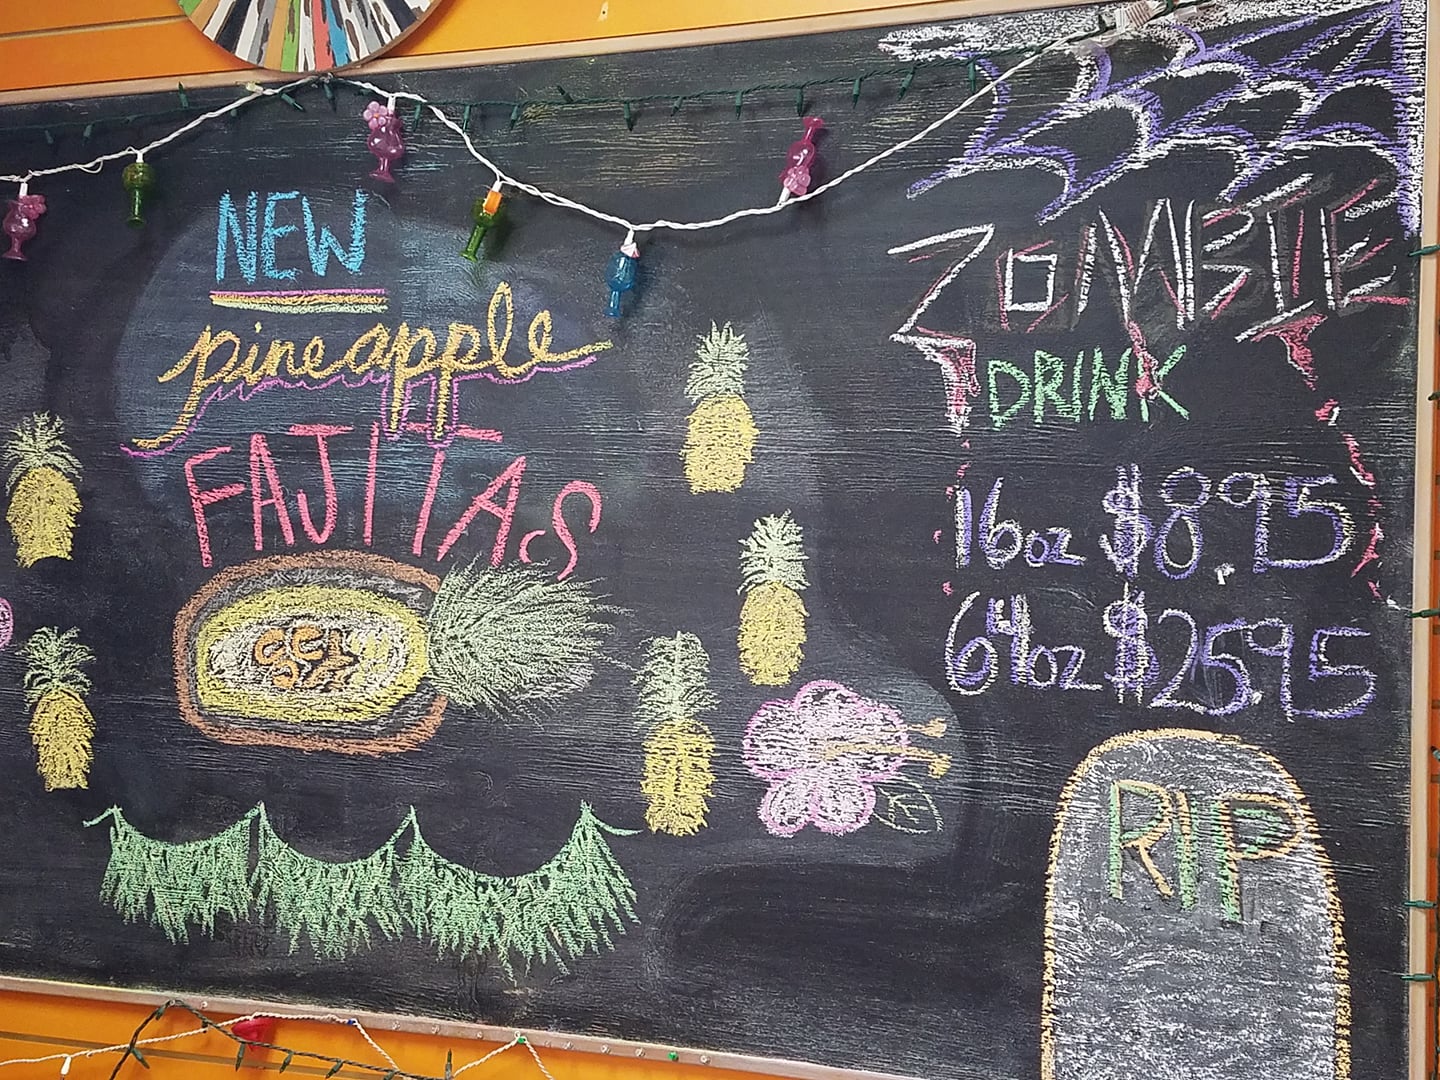 NEW
pineapple
FAJITAS
ZOMBIE
DRINK
16oz $8.95
64oz $25.95
RIP